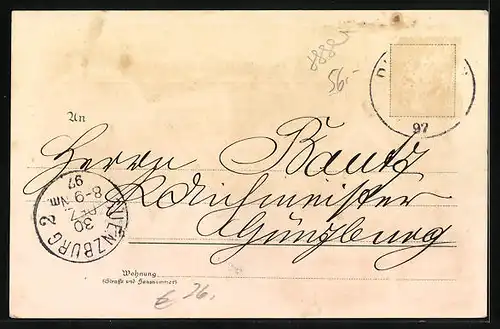 56.-
97
An
Herrn Bautz
Aichmeister
Günzburg
GUENZBURG 2
30 DEZ.
8-9 Nm.
97
Wohnung
(Straße und Hausnummer)
€ 26.